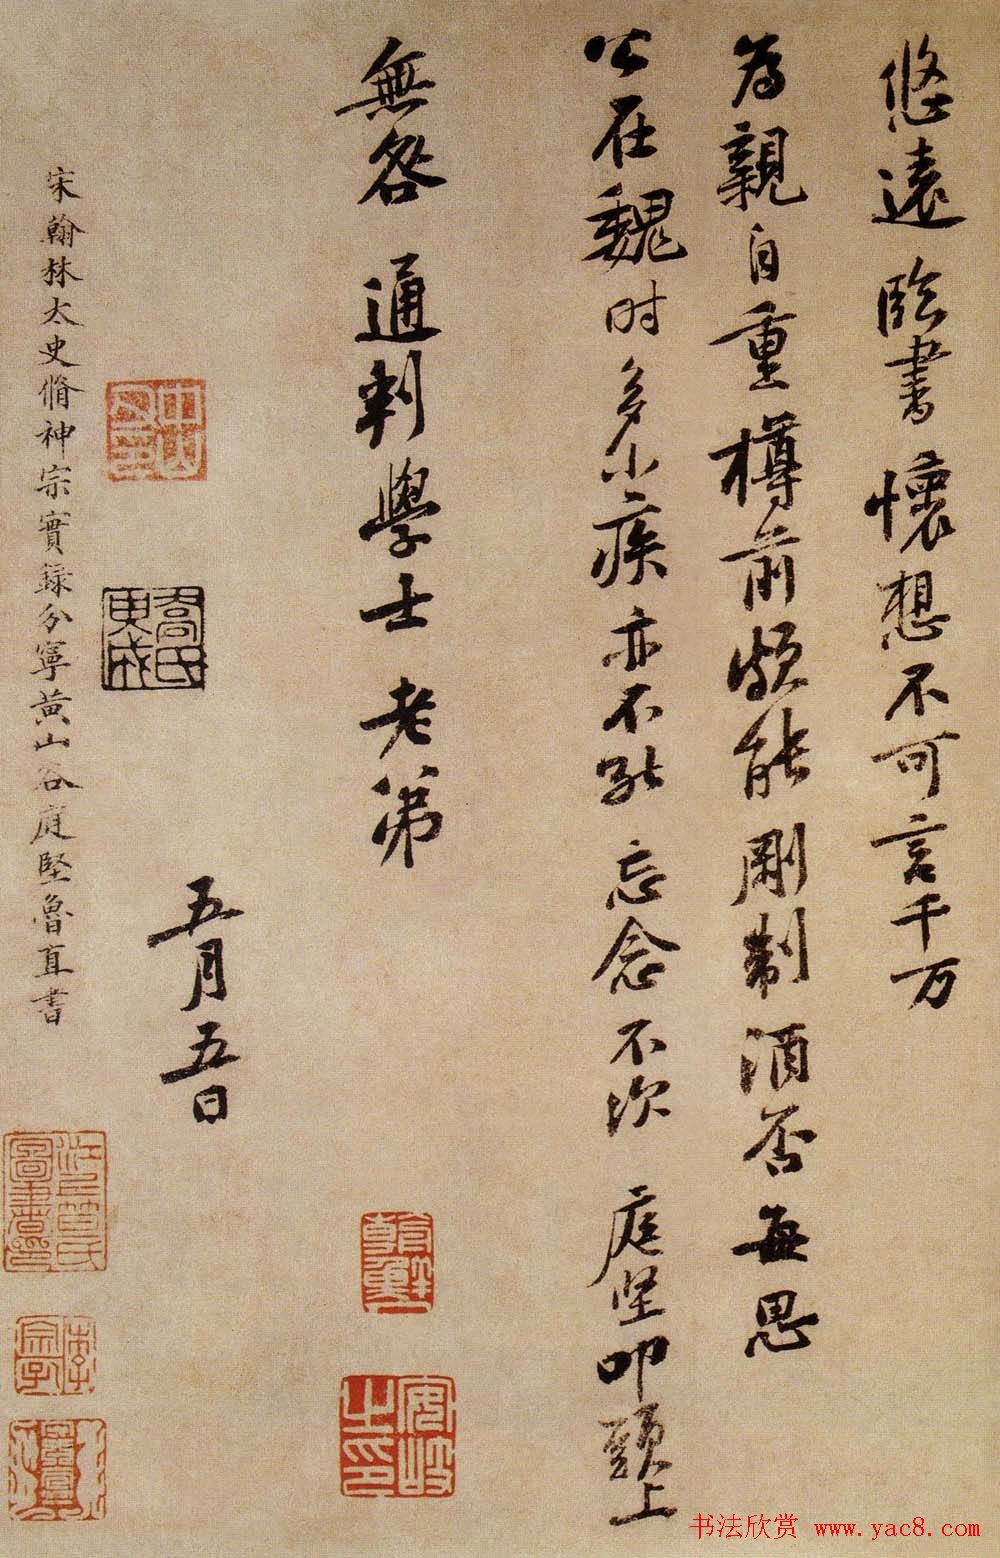 悠遠臨書懷想不可言千万
為親自重樽前頗能剛制酒否每思
公在魏时多小疾亦不能忘念不次庭坚叩頭上
無咎通判學士老弟
五月五日
宋翰林太史脩神宗實録分寧黄山谷庭堅魯直書
喬氏
安岐之印
书法欣赏 www.yac8.com